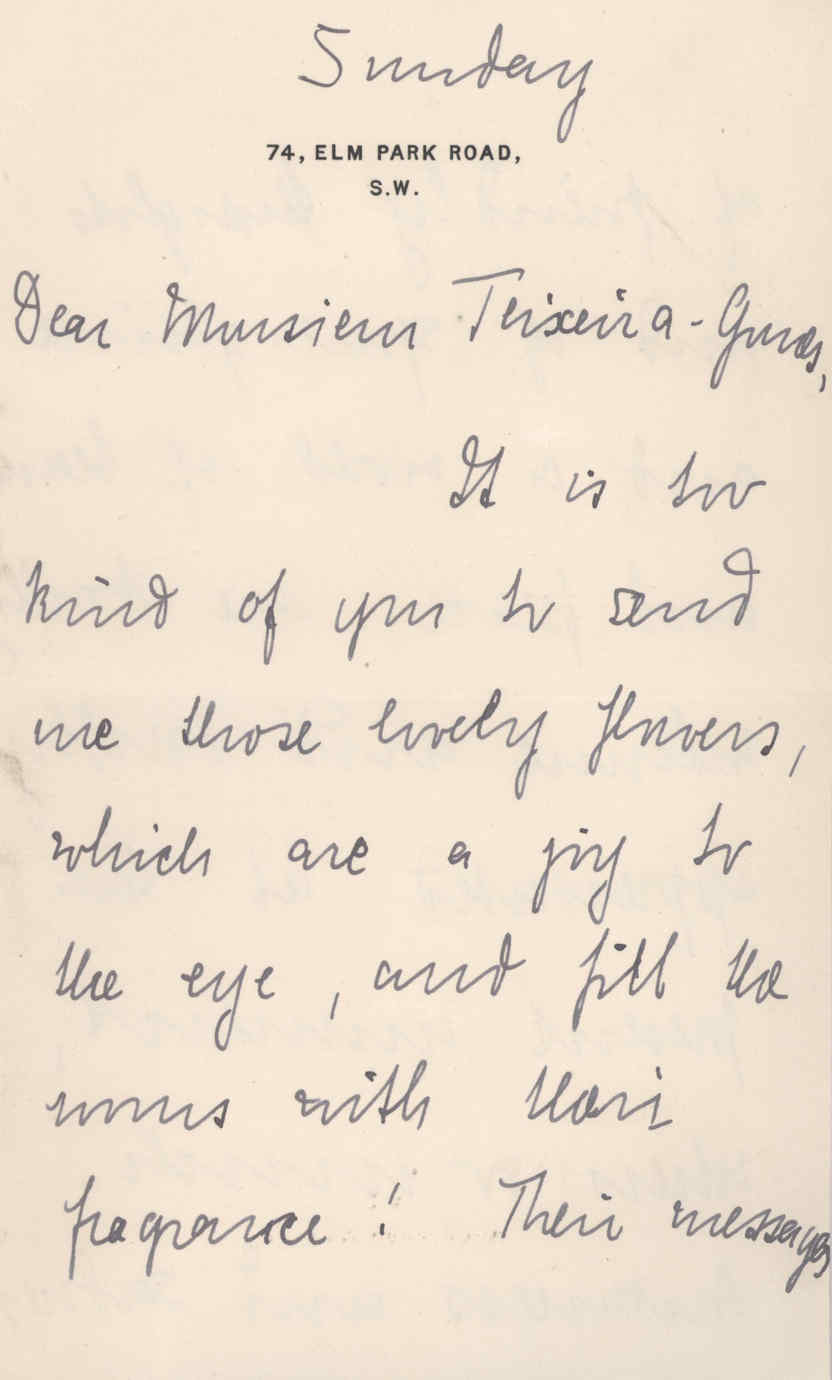 Sunday
74, ELM PARK ROAD,
S.W.
Dear Monsieur Teixeira-Gomes,
It is too
kind of you to send
me those lovely flowers,
which are a joy to
the eye, and fill the
rooms with their
fragrance! Their messages